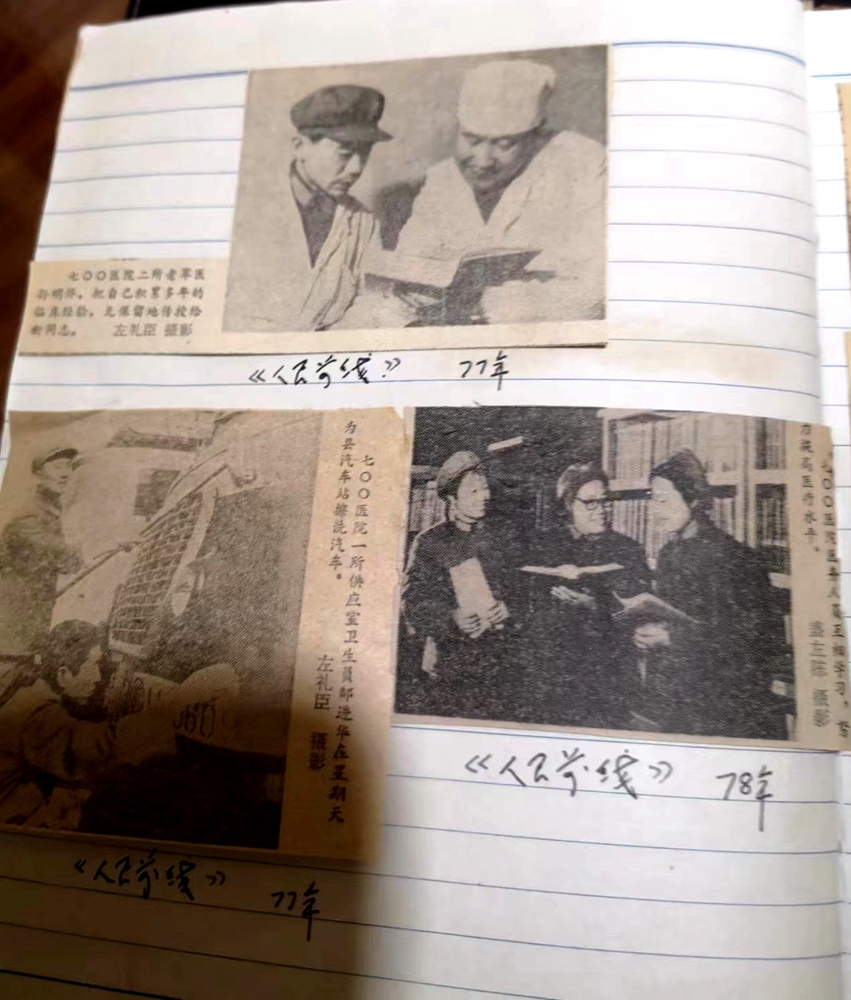 七〇〇医院二所老军医
孙明停,把自己积累多年的
临床经验,无保留地传授给
新同志。 左礼臣 摄影
《人民前线》 77年
七〇〇医院一所供应室卫生员郜进华在星期天
为县汽车站擦洗汽车。
左礼臣 摄影
《人民前线》 77年
七〇〇医院医务人员互相学习,努
力提高医疗水平。
摄影
《人民前线》 78年